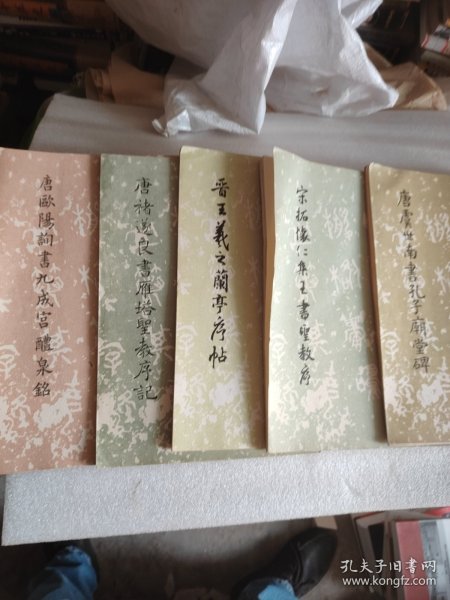 唐歐陽詢書九成宮醴泉銘
唐褚遂良書雁塔聖教序記
晋王羲之蘭亭序帖
宋拓懷仁集王書聖教序
唐虞世南書孔子廟堂碑
孔夫子旧书网
www.kongfz.com